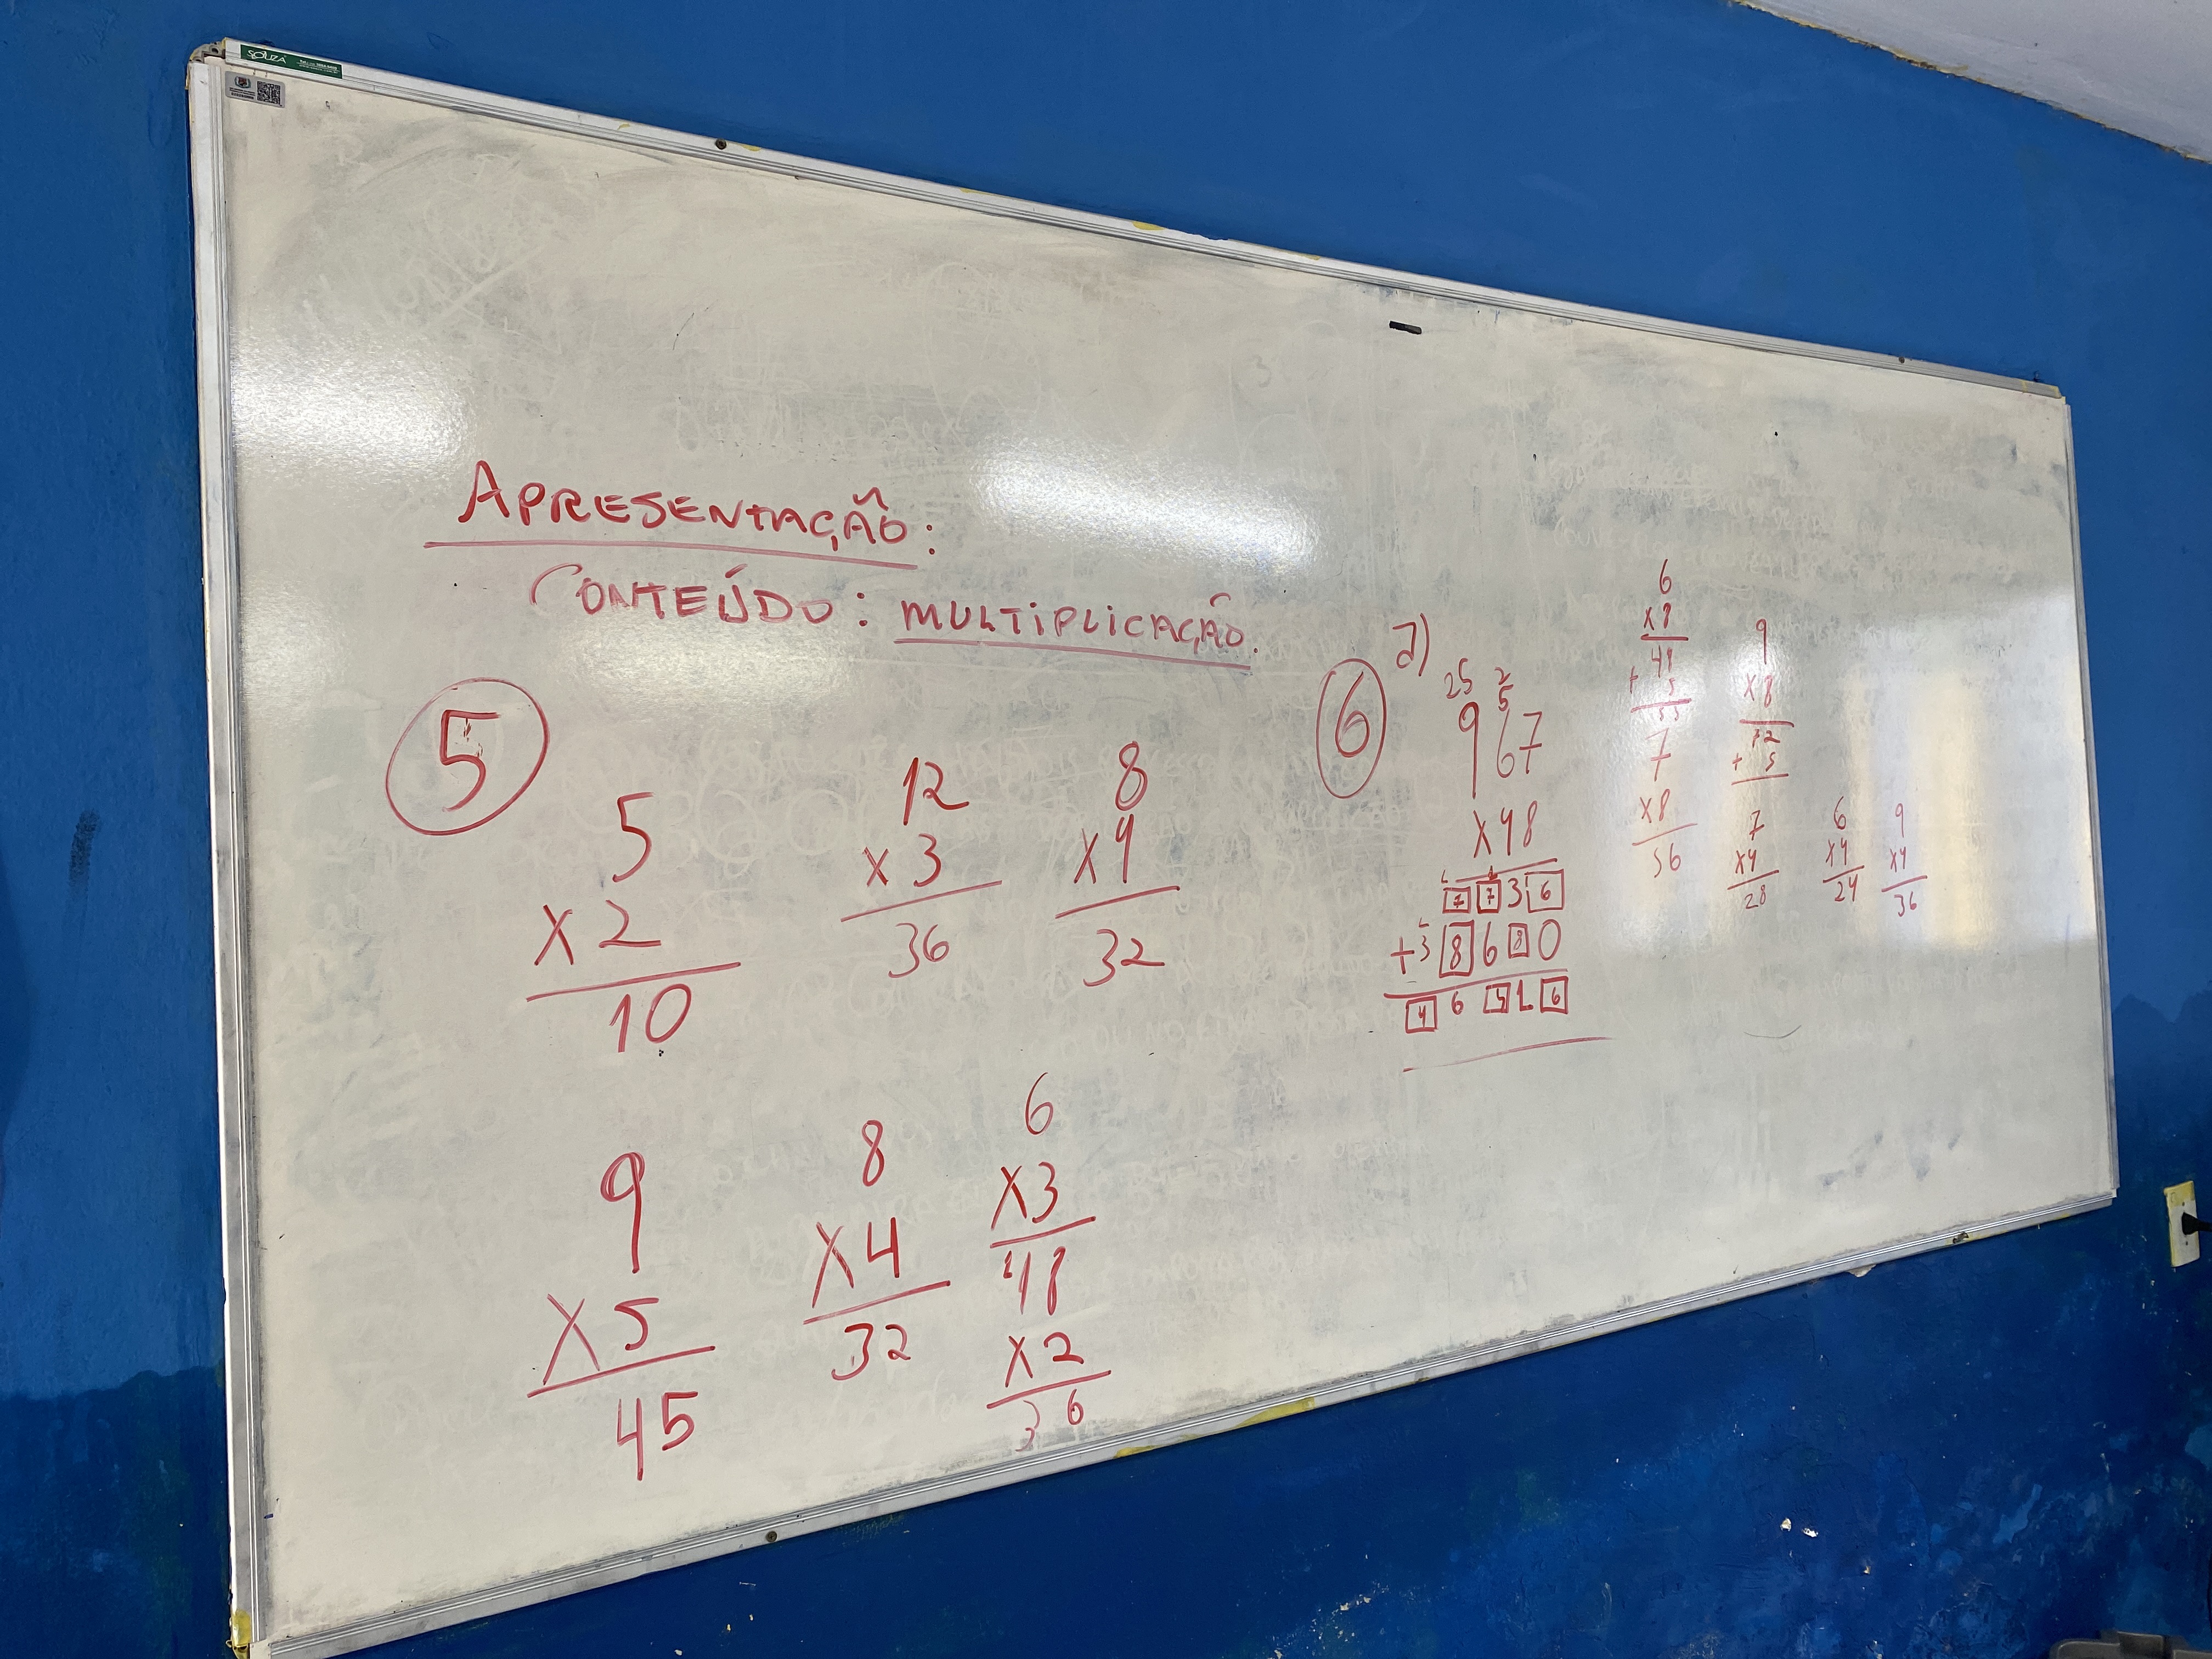 SOUZA
APRESENTAÇÃO:
CONTEÚDO: MULTIPLICAÇÃO.
5
5
x 2
10
12
x 3
36
8
x 4
32
9
x 5
45
8
x 4
32
6
x 3
18
x 2
36
6
a)
25 2
5
967
x 48
7 7 3 6
+ 3 8 6 8 0
4 6 4 1 6
6
x 8
48
+ 5
53
7
x 8
56
9
x 8
72
+ 5
7
x 4
28
6
x 4
24
9
x 4
36